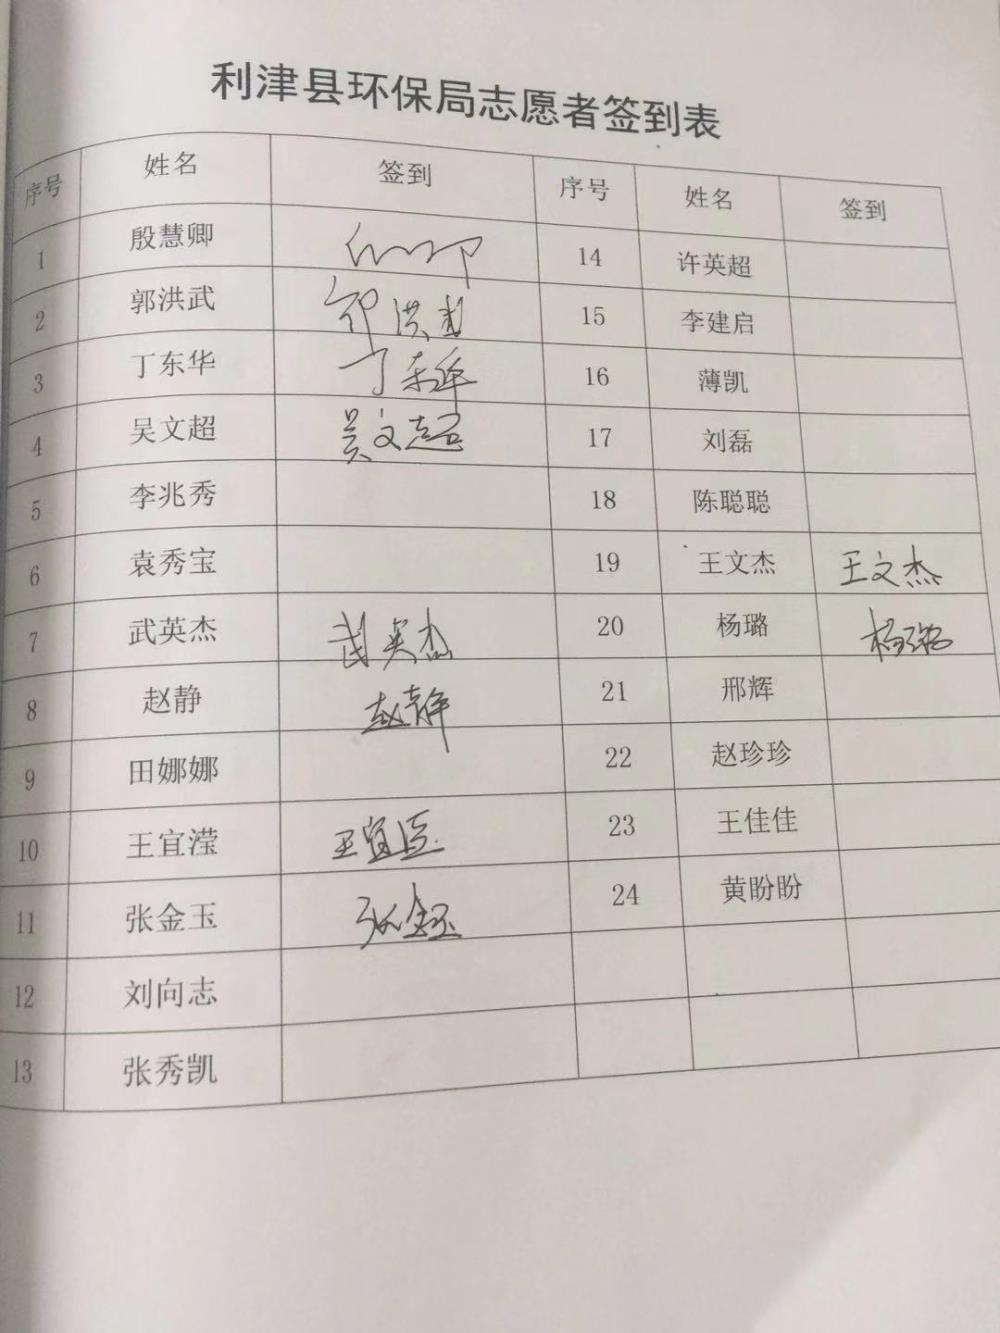 利津县环保局志愿者签到表
序号 姓名 签到 序号 姓名 签到
1 殷慧卿 14 许英超
2 郭洪武 郭洪武 15 李建启
3 丁东华 丁东华 16 薄凯
4 吴文超 吴文超 17 刘磊
5 李兆秀 18 陈聪聪
6 袁秀宝 19 王文杰 王文杰
7 武英杰 武英杰 20 杨璐 杨璐
8 赵静 赵静 21 邢辉
9 田娜娜 22 赵珍珍
10 王宜滢 王宜滢 23 王佳佳
11 张金玉 张金玉 24 黄盼盼
12 刘向志
13 张秀凯